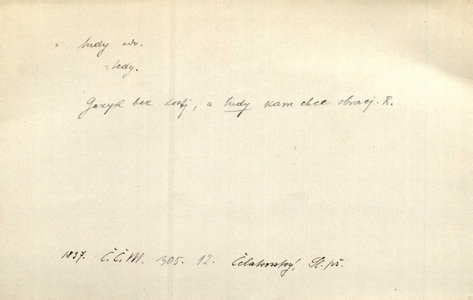 tudy adv.
= tedy.
Gazyk bez kostj, a tudy kam chce obracj. R.
1837. Č.Č.M. 305. 12. Čelakovský, Sl. př.